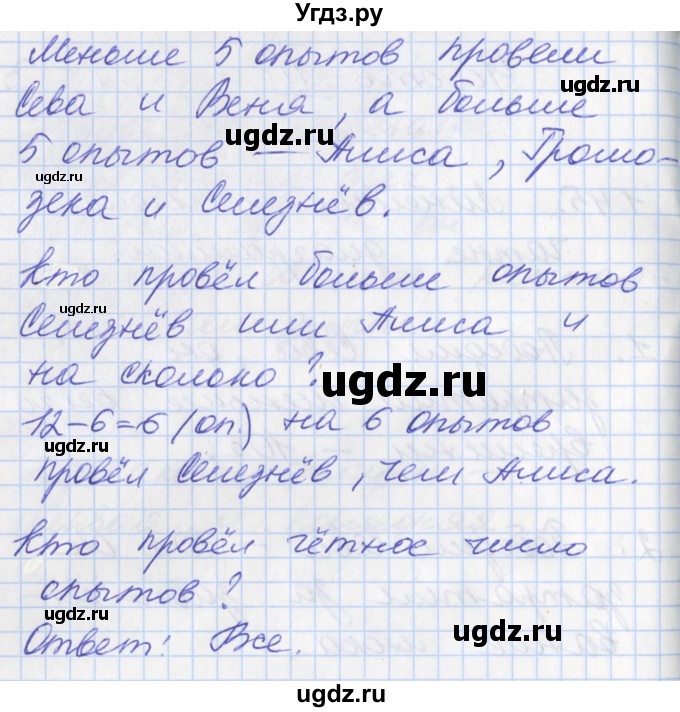 Угдз.ру
Меньше 5 опытов провели
Сева и Веня, а больше
5 опытов – Алиса, Громо-
зека и Селезнёв.
Кто провёл больше опытов
Селезнёв или Алиса и
на сколько?
12-6=6 (оп.) на 6 опытов
провёл Селезнёв, чем Алиса.
Кто провёл чётное число
опытов?
Ответ: Все.
ugdz.ru
ugdz.ru
ugdz.ru
ugdz.ru
ugdz.ru
ugdz.ru
ugdz.ru
ugdz.ru
ugdz.ru
ugdz.ru
ugdz.ru
ugdz.ru